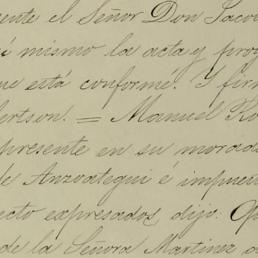 ente el Señor Don Jacob
í mismo la acta y proy
ue está conforme. Y firm
bertson. = Manuel Ro
presente en su morada
de Anzoategui é impuest
ecto expresados, dijo: Qu
de la Señora Martinez d